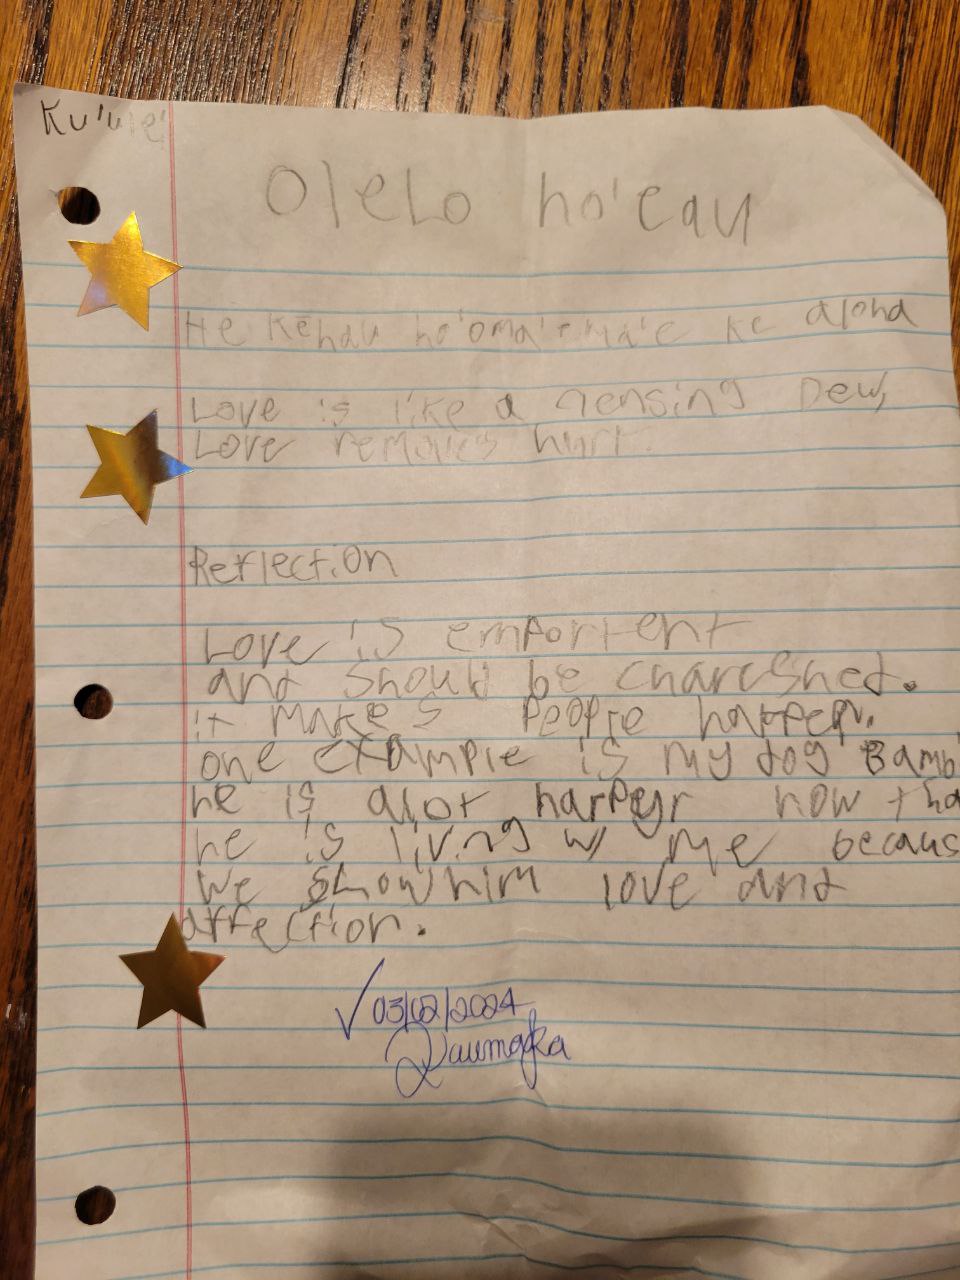 Ku'ulei
Olelo ho'eau
He Kehau ho'oma'ema'e ke aloha
Love is like a clensing Dew,
Love removes hurt.
Reflection
Love is emportent
and should be chareshed.
it makes People happen.
one example is my dog Bambi
he is alot happeyr now tha
he is living w/ me becaus
We show him love and
affection.
✓ 03/02/2024